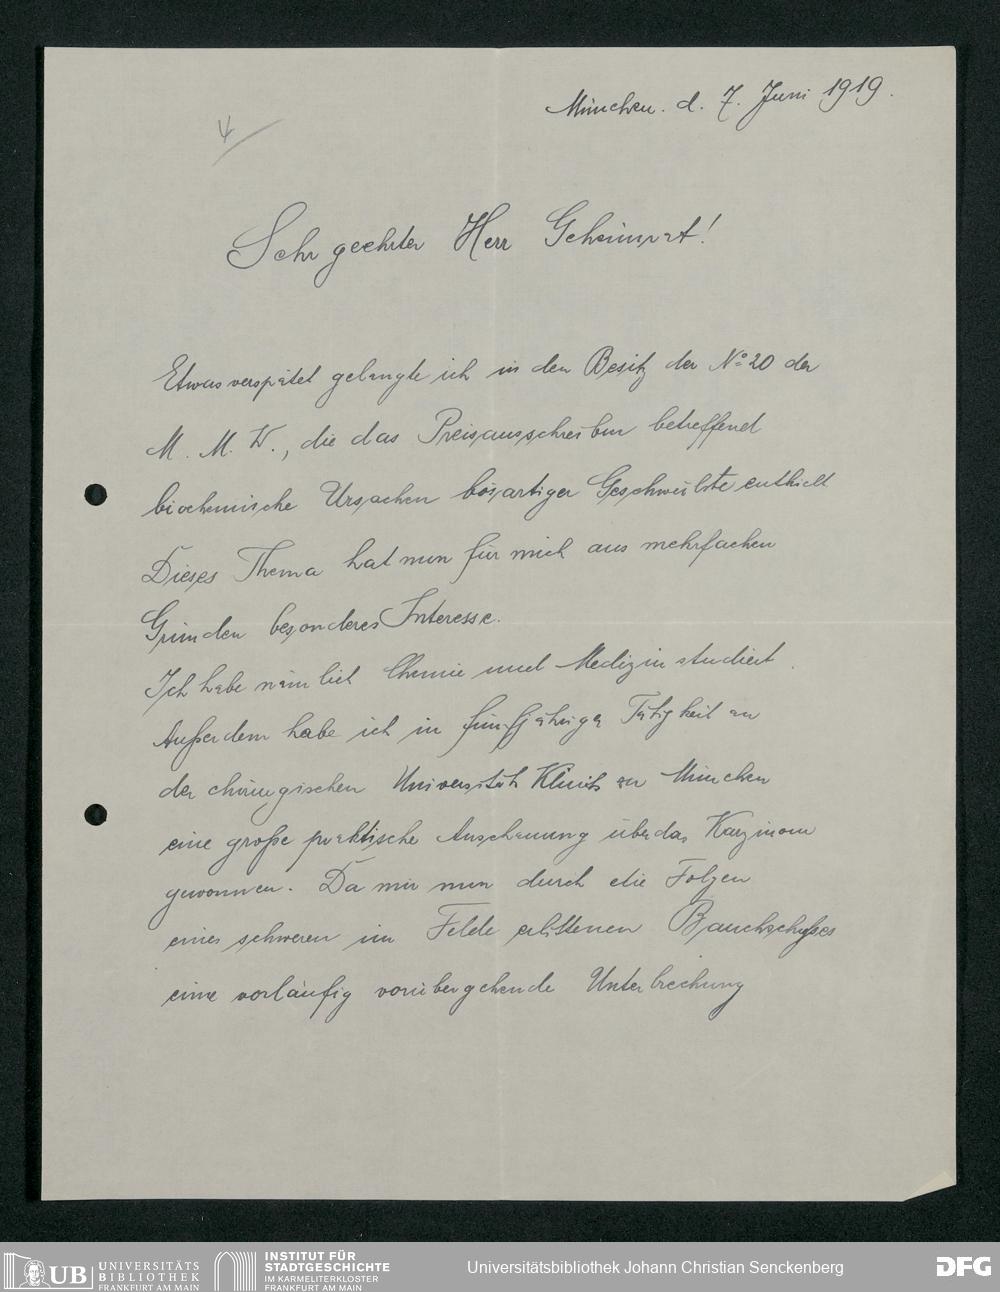 München. d. 7. Juni 1919.
Sehr geehrter Herr Geheimrat!
Etwas verspätet gelangte ich in den Besitz der No 20 der
M. M. W., die das Preisausschreiben betreffend
biochemische Ursachen bösartiger Geschwülste enthielt
Dieses Thema hat nun für mich aus mehrfachen
Gründen besonderes Interesse.
Ich habe nämlich Chemie und Medizin studiert.
Außerdem habe ich in fünfjähriger Tätigkeit an
der chirurgischen Universitäts Klinik zu München
eine große praktische Anschauung über das Karzinom
gewonnen. Da mir nun durch die Folgen
eines schweren im Felde erlittenen Bauchschußes
eine vorläufig vorübergehende Unterbrechung
UB UNIVERSITÄTS
BIBLIOTHEK
FRANKFURT AM MAIN
INSTITUT FÜR
STADTGESCHICHTE
IM KARMELITERKLOSTER
FRANKFURT AM MAIN
Universitätsbibliothek Johann Christian Senckenberg
DFG